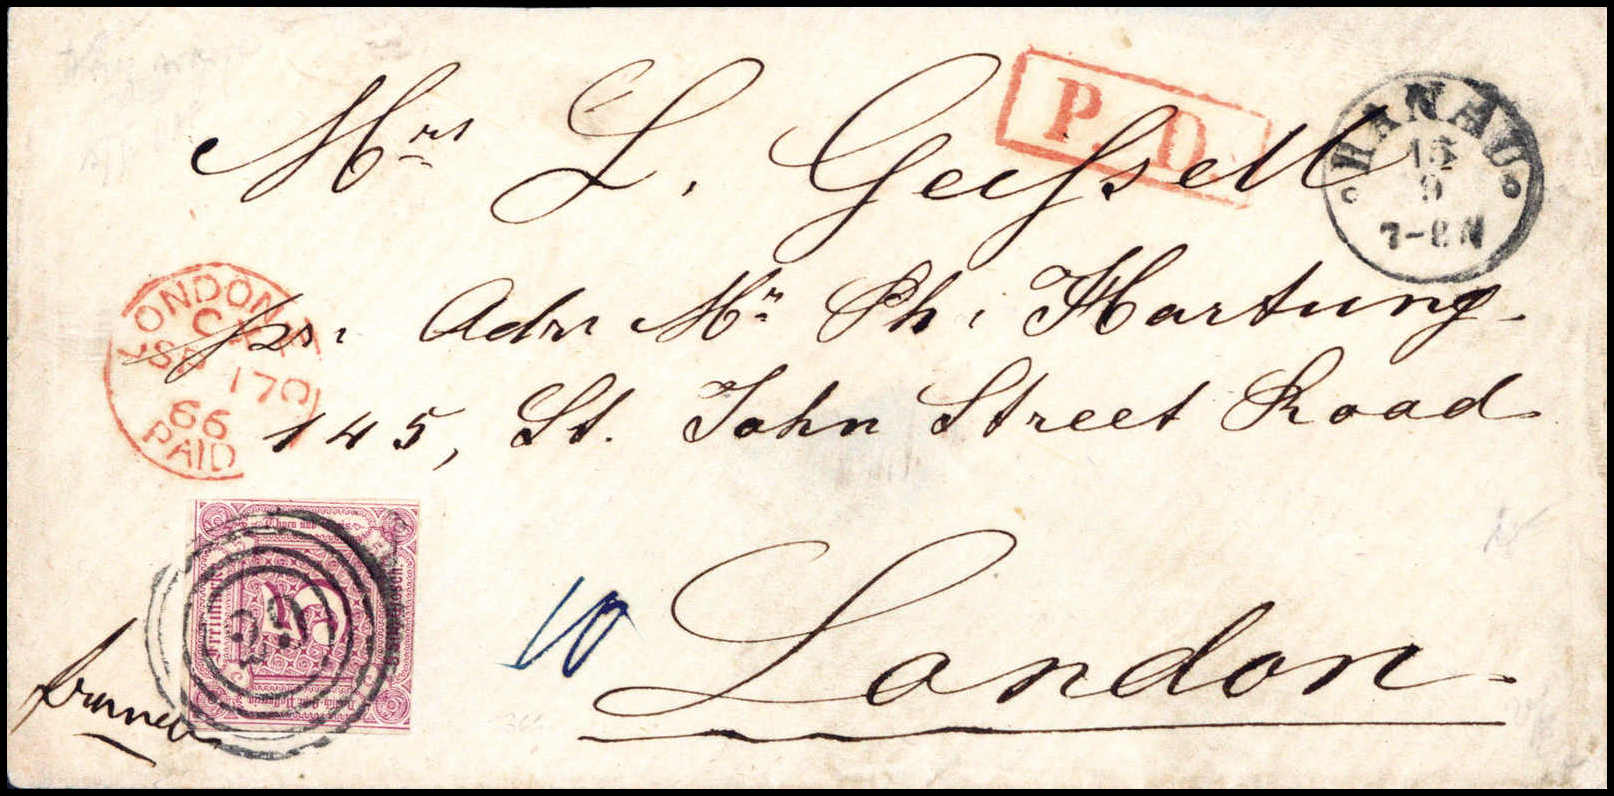 Mrs L. Geissell
P.D.
HANAU
15
9
7-8 N
pr. Adr. Mr Ph. Hartung
145, St. John Street Road
London
LONDON
C
SP 17
66
PAID
Thurn und Taxis
5
franco
10